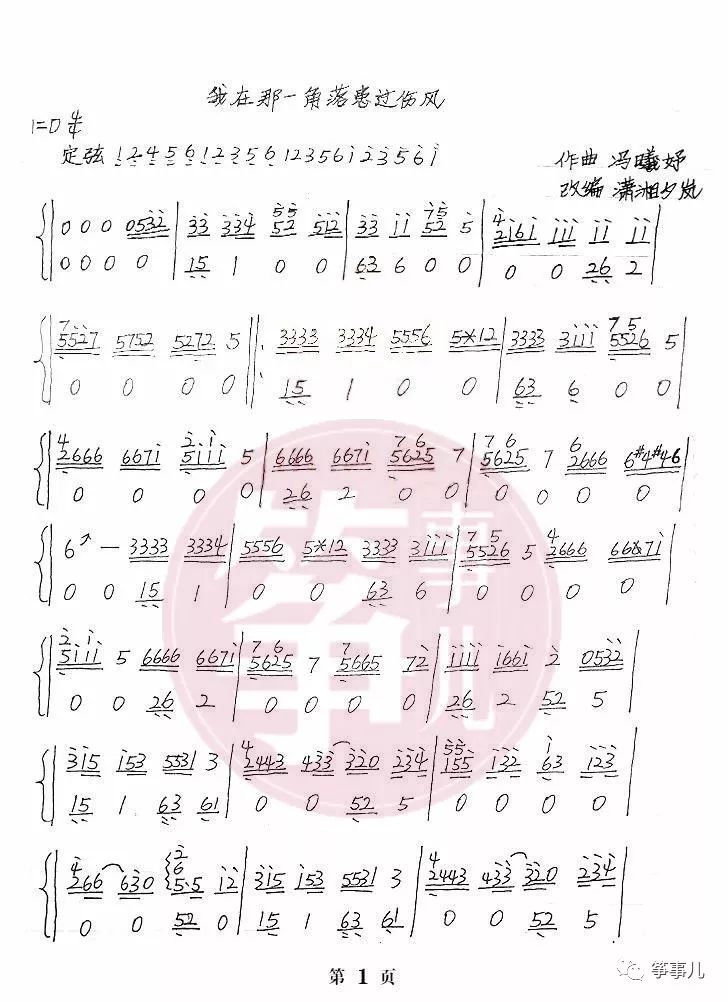 我在那一角落患过伤风
1=D 4/4
定弦 1 2 4 5 6 1 2 3 5 6 1 2 3 5 6 i 2 3 5 6 i
作曲 冯曦妤
改编 潇湘夕岚
0 0 0 0532 | 33 334 52 512 | 33 11 52 5 | 2161 111 11 11
0 0 0 0 | 15 1 0 0 | 63 6 0 0 | 0 0 26 2
5527 5752 5272 5 |: 3333 3334 5556 5*12 | 3333 3111 5526 5
0 0 0 0 |: 15 1 0 0 | 63 6 0 0
2666 6671 5111 5 | 6666 6671 5625 7 | 5625 7 2666 6#4#46
0 0 0 0 | 26 2 0 0 | 0 0 0 0
6 — 3333 3334 | 5556 5*12 3333 3111 | 5526 5 2666 6671
0 0 15 1 | 0 0 63 6 | 0 0 0 0
5111 5 6666 6671 | 5625 7 5665 72 | 1111 1661 2 0532
0 0 26 2 | 0 0 0 0 | 26 2 52 5
315 153 5531 3 | 2443 433 320 234 | 155 132 63 123
15 1 63 61 | 0 0 52 5 | 0 0 0 0
266 630 5·5 12 | 315 153 5531 3 | 2443 433 320 234
0 0 52 0 | 15 1 63 61 | 0 0 52 5
筝事儿
第 1 页
筝事儿